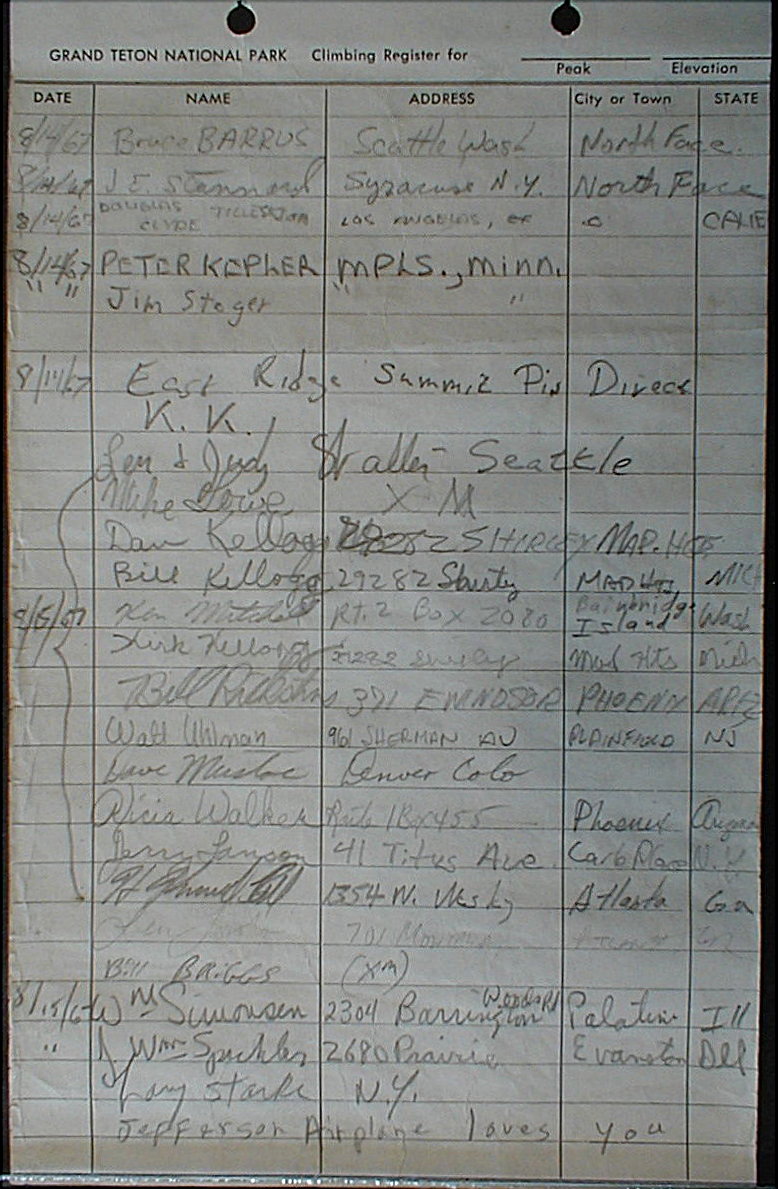 GRAND TETON NATIONAL PARK Climbing Register for
Peak Elevation
DATE NAME ADDRESS City or Town STATE
8/14/67 Bruce BARRUS Seattle Wash North Face.
8/14/67 J E. Stannard Syracuse N.Y. North Face
DOUGLAS
8/14/67 CLYDE LOS ANGELES, CALIF
8/14/67 PETER KEPLER MPLS., Minn.
" " Jim Steger " "
8/14/67 East Ridge Summit Direct
K. K.
Len & Judy Seattle
Mike Lowe X M
Dave Kellogg 29282 SHIRLEY MAD. HGTS
Bill Kellogg 29282 Shirley MAD HTS MICH
8/15/67 Ken Mitchell Rt. 2 Box 2080 Bainbridge Island Wash
Kirk Kellogg 29282 Shirley Mad Hts Mich
Bill 371 E WINDSOR PHOENIX ARIZ
Walt Uhlman 961 SHERMAN AV PLAINFIELD NJ
Dave Denver Colo
Walker Route 1 Box 455 Phoenix Arizona
Jerry 41 Titus Ave. Carle Place N.Y.
1354 N. Atlanta Ga
701
Bill BRIGGS (XM)
8/15/67 Wm Simonsen 2304 Barrington Woods Rd Palatine Ill
" J Wm 2680 Prairie Evanston
Tony Starke N.Y.
Jefferson Airplane loves you